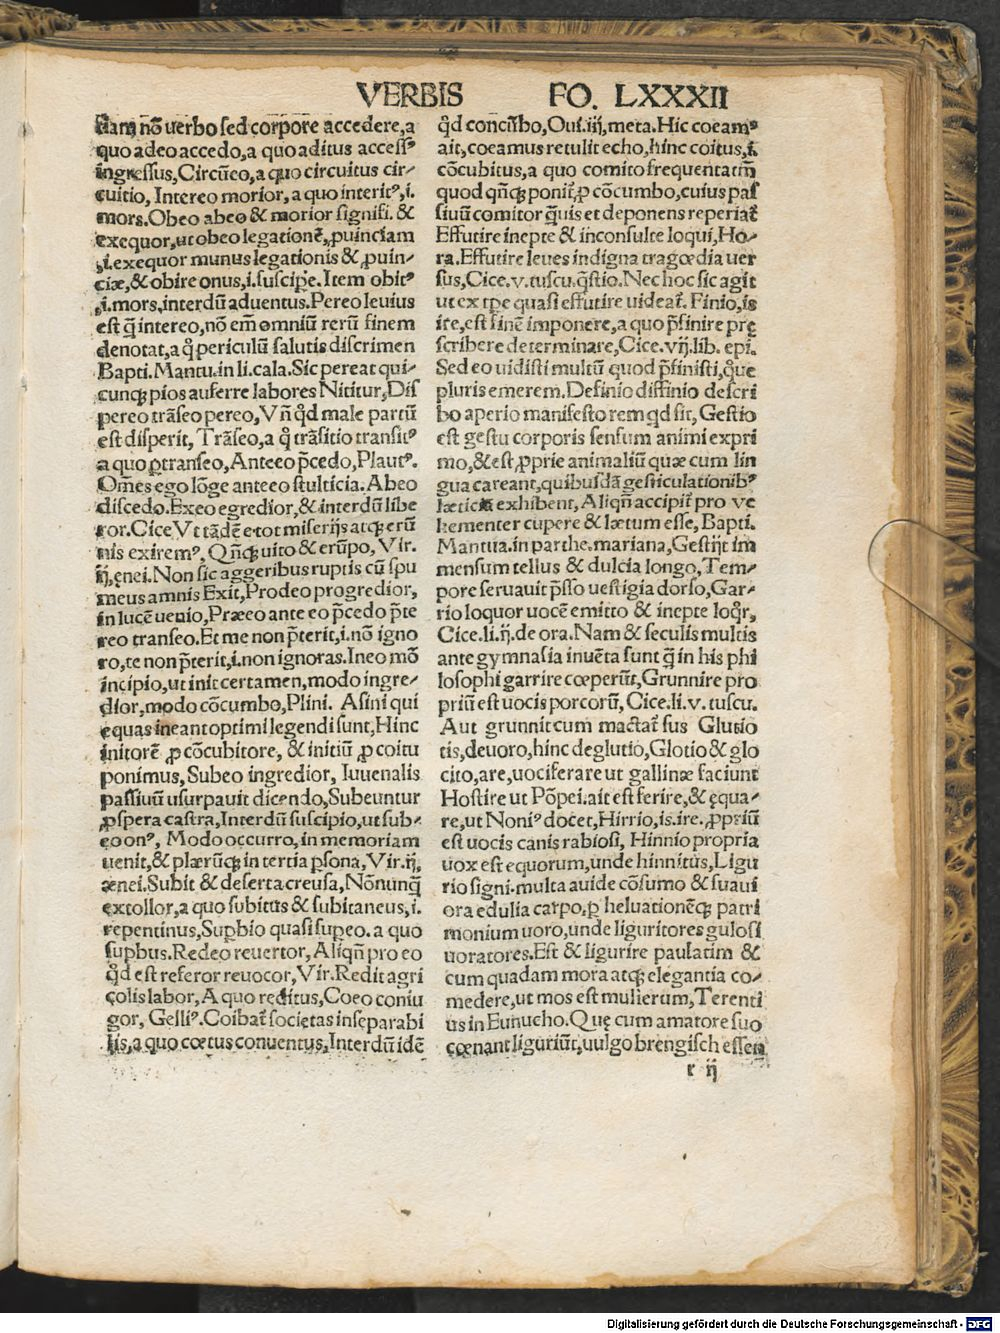 VERBIS FO. LXXXII
nō uerbo sed corpore accedere,a
quo adeo accedo,a quo aditus accessꝰ
ingressus,Circūeo,a quo circuitus cir⸗
cuitio, Intereo morior, a quo interitꝰ,i.
mors.Obeo abeo & morior signifi. &
exequor,ut obeo legationē,ꝓuinciam
,i.exequor munus legationis & ꝓuin⸗
ciæ,& obire onus,i.suscipe. Item obitꝰ
,i.mors,interdū aduentus.Pereo leuius
est q̄ intereo,nō em̄ omniū rerū finem
denotat,a q̊ periculū salutis discrimen
Bapti.Mantu.in li.cala.Sic pereat qui⸗
cunqꝫ pios auferre labores Nititur,Dis
pereo trāseo pereo,Vn̄ q̊d male partū
est disperit, Trāseo,a q̊ trāsitio transitꝰ
a quo ꝑtranseo,Anteeo p̄cedo,Plautꝰ.
Om̄es ego lōge anteeo stulticia.Abeo
discedo.Exeo egredior,& interdū libe
ror.Cice Vt tādē e tot miserijs atqꝫ erū
nis exiremꝰ, Qn̄qꝫ uito & erūpo, Vir.
ij,ęnei.Non sic aggeribus ruptis cū spu
meus amnis Exit,Prodeo progredior,
in lucē uenio,Præeo ante eo p̄cedo p̄te
reo transeo.Et me non p̄terit,i.nō igno
ro,te non p̄terit,i.non ignoras.Ineo mō
incipio,ut init certamen,modo ingre⸗
dior,modo cōcumbo,Plini. Asini qui
equas ineant optimi legendi sunt,Hinc
initorē ꝓ cōcubitore, & initiū ꝓ coitu
ponimus,Subeo ingredior, Iuuenalis
passiuū usurpauit dicendo,Subeuntur
ꝓspera castra,Interdū suscipio,ut sub⸗
eo onꝰ, Modo occurro, in memoriam
uenit,& plærūqꝫ in tertia ꝑsona, Vir.ij,
ænei.Subit & deserta creusa,Nōnunq̄
extollor,a quo subitus & subitaneus,i.
repentinus, Suꝑbio quasi suꝑeo. a quo
suꝑbus.Redeo reuertor, Aliqn̄ pro eo
q̊d est referor reuocor,Vir.Redit agri
colis labor, A quo reditus,Coeo coniu
gor, Gelliꝰ.Coibat̄ societas inseparabi
lis,a quo cœtus conuentus,Interdū idē
q̊d concūbo,Oui.iij,meta.Hic coeamꝰ
ait,coeamus retulit echo,hinc coitus,i.
cōcubitus,a quo comito frequentatiū
quod qn̄qꝫ ponit̄ ꝓ cōcumbo,cuius pas
siuū comitor q̄uis et deponens reperiat̄
Effutire inepte & inconsulte loqui,Ho⸗
ra.Effutire leues indigna tragœdia uer
sus,Cice.v.tuscu.q̄stio.Nec hoc sic agit
ut ex tpe quasi effutire uideat̄. Finio,is
ire,est finē imponere,a quo p̄finire prę
scribere determinare,Cice.vij.lib. epi.
Sed eo uidisti multū quod p̄finisti,q̊ue
pluris emerem.Definio diffinio descri
bo aperio manifesto rem qd sit, Gestio
est gestu corporis sensum animi expri
mo,& est ꝓprie animaliū quæ cum lin
gua careant,quibusdā gesticulationibꝰ
læticiā exhibent, Aliqn̄ accipit̄ pro ve
hementer cupere & lætum esse, Bapti.
Mantua.in parthe.mariana,Gestijt im
mensum tellus & dulcia longo, Tem⸗
pore seruauit p̄sso uestigia dorso, Gar⸗
rio loquor uocē emitto & inepte loq̊r,
Cice.li.ij.de ora.Nam & seculis multis
ante gymnasia inuēta sunt q̄ in his phi
losophi garrire cœperūt,Grunnire pro
priū est uocis porcorū, Cice.li.v. tuscu.
Aut grunnit cum mactat̄ sus Glutio
tis,deuoro,hinc deglutio,Glotio & glo
cito,are,uociferare ut gallinæ faciunt
Hostire ut Pōpei.ait est ferire,& ęqua⸗
re,ut Noniꝰ docet,Hirrio,is.ire.ꝓpriū
est uocis canis rabiosi, Hinnio propria
uox est equorum,unde hinnitus,Ligu
rio signi.multa auide cōsumo & suaui
ora edulia carpo,ꝑ heluationēqꝫ patri
monium uoro,unde liguritores gulosi
uoratores.Est & ligurire paulatim &
cum quadam mora atqꝫ elegantia co⸗
medere,ut mos est mulierum,Terenti
us in Eunucho.Quę cum amatore suo
cœnant liguriūt,uulgo brengisch essen
r ij
Digitalisierung gefördert durch die Deutsche Forschungsgemeinschaft - DFG